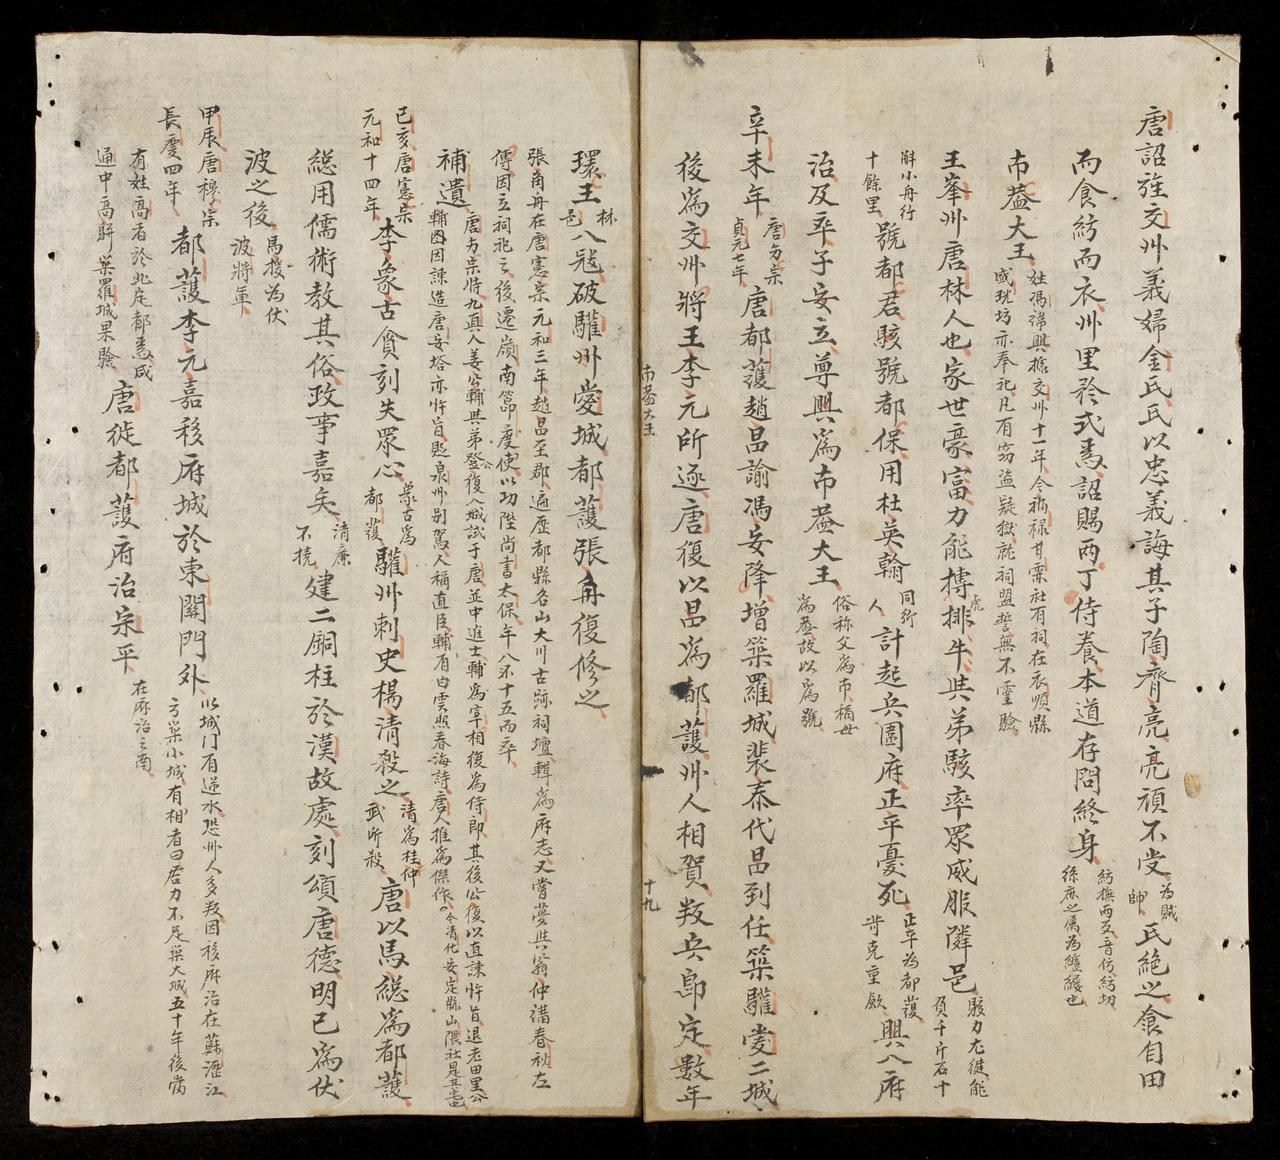 唐詔旌交州義婦金氏氏以忠義誨其子陶齊亮亮頑不受為賊帥氏絶之食自田
而食紡而衣州里矜式焉詔賜兩丁侍養本道存問終身紡撫兩反音仿紡切絲麻之属為纏縷也
布蓋大王姓馮諱興據交州十一年今福禄甘棠社有祠在衣順縣盛珖坊亦奉祀凡有窃盜疑獄就祠盟誓無不靈驗
王峯州唐林人也家世豪富力能搏虎排牛共弟駭率眾威服隣邑駭力尤健能負千斤石十
觧小舟行十餘里號都君駭號都保用杜英翰同行人計起兵圍府正平憂死正平為都護苛克重歛興入府
治及卒子安立尊興為布蓋大王俗称父為布稱母為蓋故以為號
辛未年唐方宗貞元七年唐都護趙昌諭馮安降增築羅城裴泰代昌到任築驩愛二城
後為交州將王李元所逐唐復以昌為都護州人相賀叛兵即定數年
布蓋大王
十九
環王林邑入冦破驩州愛城都護張舟復修之
張舟在唐憲宗元和三年趙昌至郡遍歷都縣名山大川古跡祠壇輯為府志又嘗夢共翁仲講春秋左
傳因立祠祀之後遷嶺南節度使以功陞尚書太保年八不十五而卒
補遺唐方宗時九真人姜公輔共弟登公復入城試于唐並中進士輔為宰相復為侍郎其後公復以直諫忤旨退老田里公
輔因諫造唐安塔亦忤旨貶泉州别駕人稱直臣輔有白雲照春海詩唐人推為傑作今清化安定縣山隈社是其宅也
己亥唐憲宗元和十四年李象古貪刻失眾心象古為都護驩州刺史楊清殺之清為桂仲武所殺唐以馬縂為都護
縂用儒術教其俗政事嘉矣清廉不撓建二銅柱於漢故處刻頌唐德明已為伏
波之後馬援為伏波將軍
甲辰唐穆宗長慶四年都護李元嘉移府城於東關門外以城门有逆水恐州人多叛因移府治在蘇瀝江
方築小城有相者曰君力不足築大城五十年後當
有姓高者於此定都焉咸通中高駢築羅城果驗唐徙都護府治宋平在府治之南